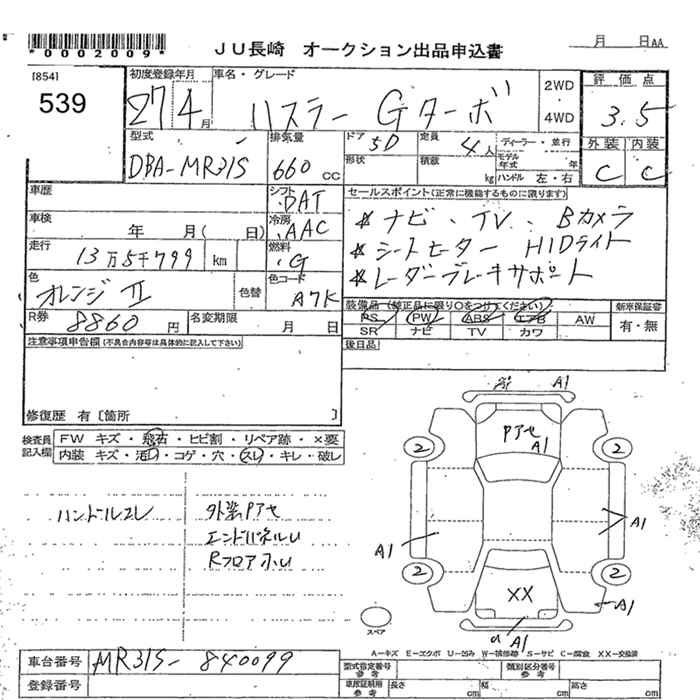 *0002009*
JU長崎 オークション出品申込書
月 日AA
[854]
539
初度登録年月
27年4月
車名・グレード
ハスラー Gターボ
2WD
4WD
評価点
3.5
型式
DBA-MR31S
排気量
660 CC
ドア 5D
形状
定員 4人
積載 kg
ディーラー・並行
モデル年式 年
ハンドル 左・右
外装 内装
C C
車歴
シフト DAT
セールスポイント(正常に機能するものに限ります)
車検 年 月( 日)
冷房 AAC
* ナビ、TV、Bカメラ
* シートヒーター HIDライト
* レーダーブレーキサポート
走行 13万5千799 km
燃料 G
色 オレンジII
色替
色コード A7K
R券 8860円
名変期限 月 日
装備品(純正品に限り○をつけてください)
PS PW ABS エアB AW
SR ナビ TV カワ
新車保証書
有・無
後日品
注意事項申告欄(不具合内容等は具体的に記入して下さい)
修復歴 有〔箇所 〕
検査員記入欄
FW キズ・飛石・ヒビ割・リペア跡・×要
内装 キズ・汚レ・コゲ・穴・スレ・キレ・破レ
ハンドルスレ
外装Pアセ
エンドパネルU
Rフロアホル
A1
Pアセ
A1
2 2
A1 A1
2 2
XX
A1
A1
スペア
A-キズ E-エクボ U-凹み W-補修跡 S-サビ C-腐食 XX-交換済
車台番号 MR31S-840099
登録番号
型式指定番号 参考
類別区分番号 参考
車庫証明用 参考
長さ cm 幅 cm 高さ cm